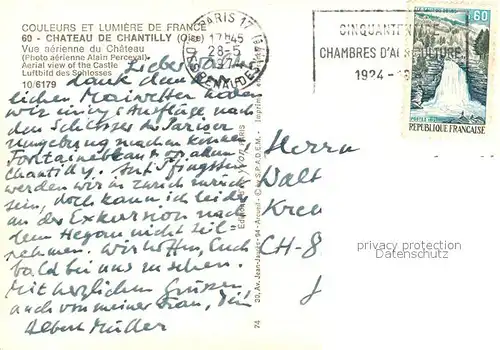 COULEURS ET LUMIÈRE DE FRANCE
60 - CHATEAU DE CHANTILLY (Oise)
Vue aérienne du Château
(Photo aérienne Alain Perceval)
Aerial view of the Castle
Luftbild des Schlosses
10/6179
PARIS 17
17H45
28-5
1974
CINQUANTE
CHAMBRES D'AGRICULTURE
1924 - 19
0,60
RÉPUBLIQUE FRANÇAISE
Lieber
dank dem
lichen Maiwetter haben
wir einige Ausflüge nach
den Schlösser der Pariser
Umgebung machen können
Fontainebleau
Chantilly. Auf Pfingsten
werden wir in Zürich zurück
sein, doch kann ich leider
an der Exkursion nach
dem Hegau nicht teil-
nehmen. Wir hoffen, Euch
bald bei uns zu sehen.
Mit herzlichen Grüssen,
auch von meiner Frau, Dein
Albert Müller
Editions d'art yvon PARIS
30, Av. Jean-Jaurès - 94 - Arcueil - © by S.P.A.D.E.M. - Imprimé
74
Herrn
Walt
CH-8
privacy protection
Datenschutz